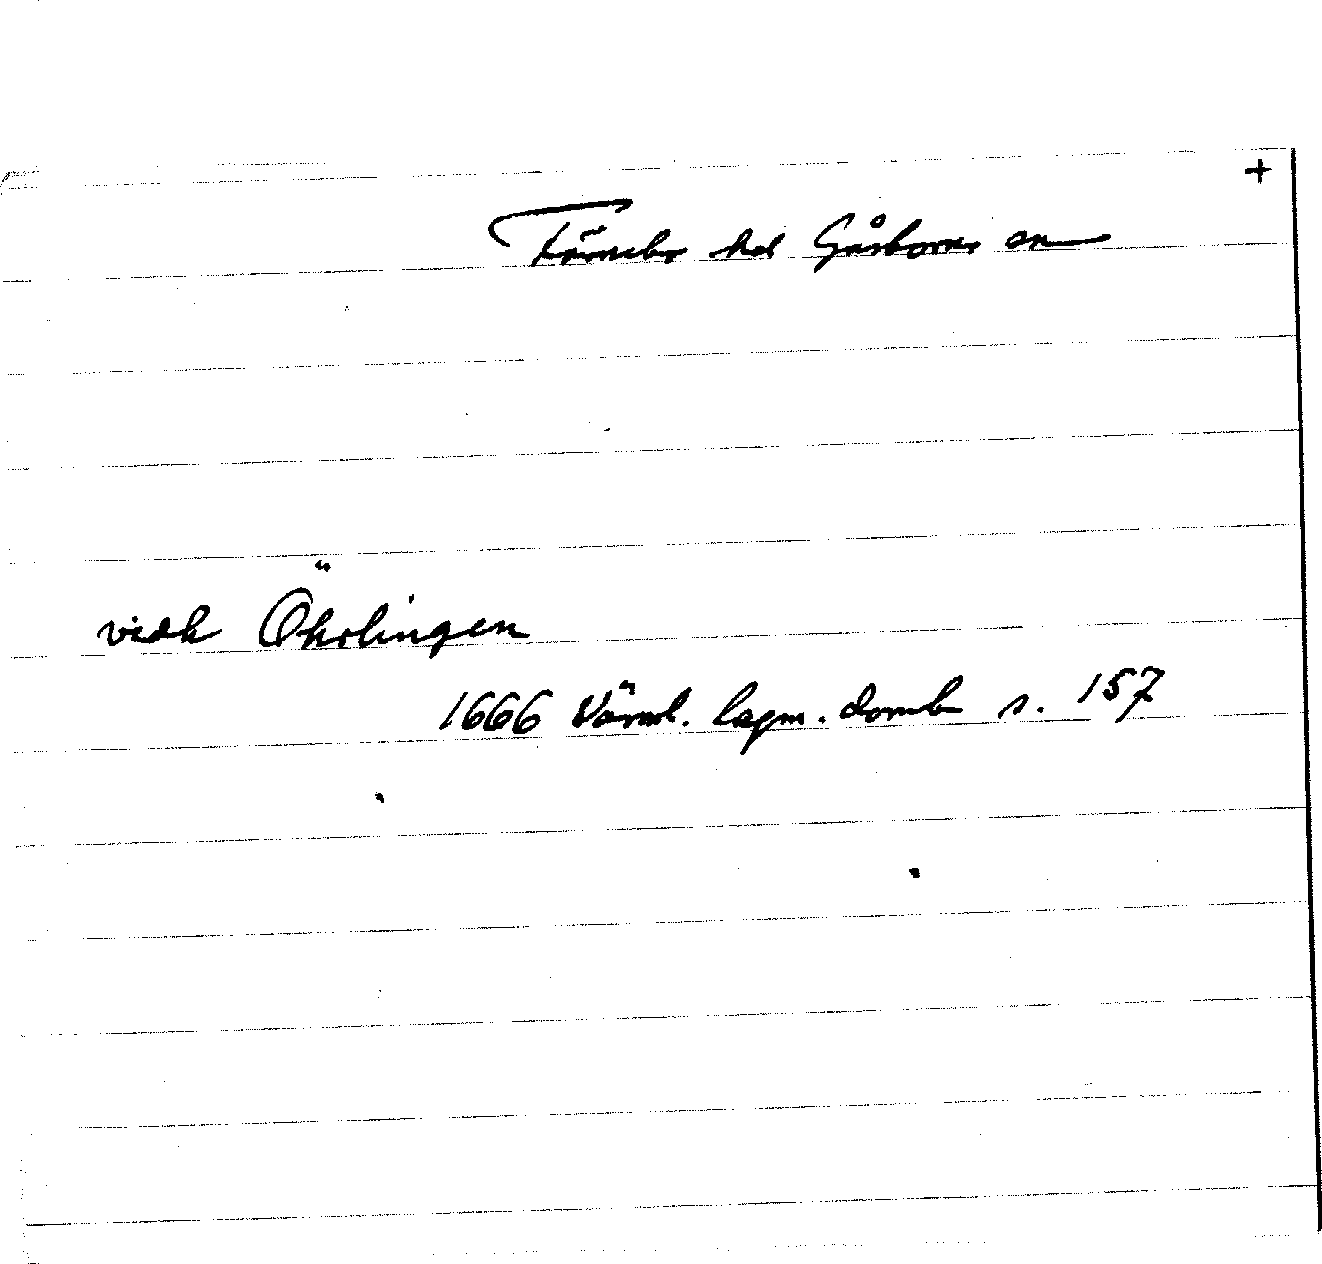 +
Färnebo hd Gåsborns sn
vidh Öhrlingen
1666 Värml. lagm. domb s. 157